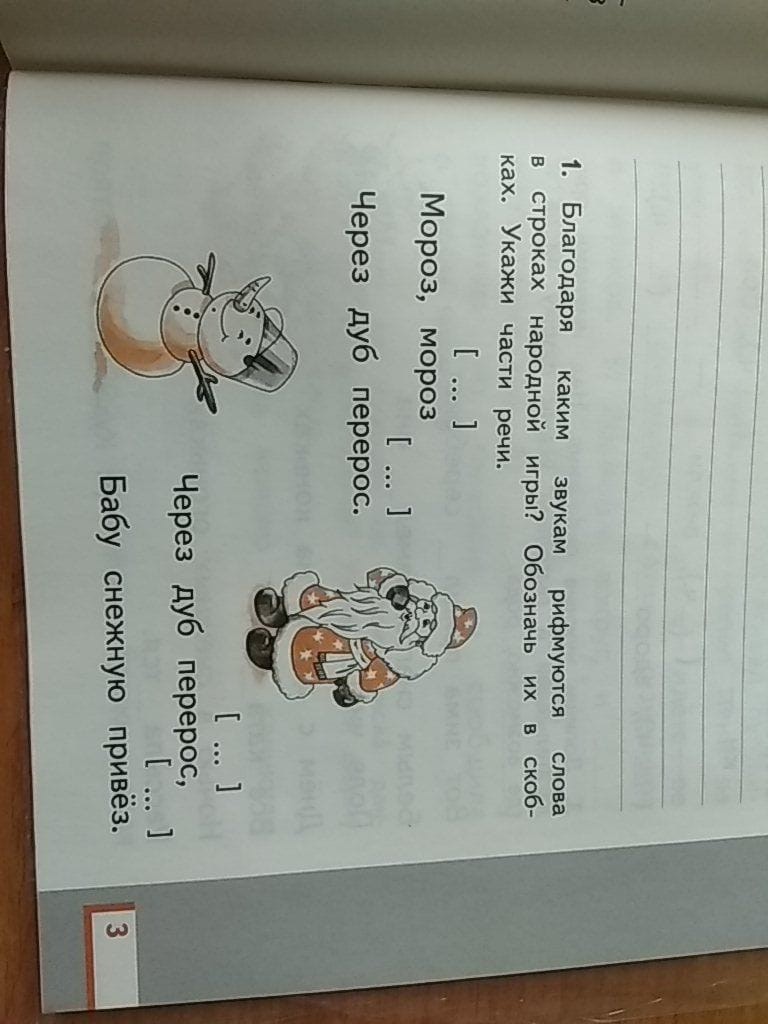 1. Благодаря каким звукам рифмуются слова
в строках народной игры? Обозначь их в скоб-
ках. Укажи части речи.
[ ... ]
Мороз, мороз
[ ... ]
Через дуб перерос.
[ ... ]
Через дуб перерос,
[ ... ]
Бабу снежную привёз.
3